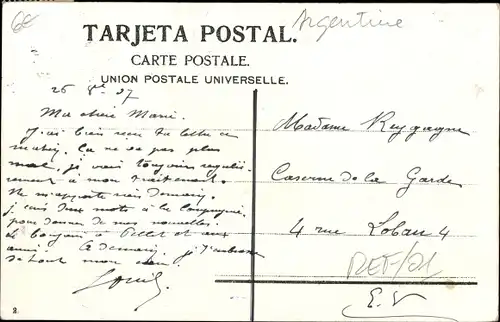 6€
Argentine
TARJETA POSTAL.
CARTE POSTALE.
UNION POSTALE UNIVERSELLE.
26 8e 07
Ma chère Marie.
J'ai bien reçu ta lettre ce
matin. Ça ne va pas plus
mal, je vais toujours réguliè-
rement à mon traitement.
Ne m'apporte rien demain.
je écris deux mots à la Compagnie
pour donner de mes nouvelles.
Le bonjour à Pillet et aux
amis. A demain. je t'embrasse
de tout mon cœur.
Louis.
Madame Reygagne
Caserne de la Garde
4 rue Lobau 4
REF/01
E.V
2